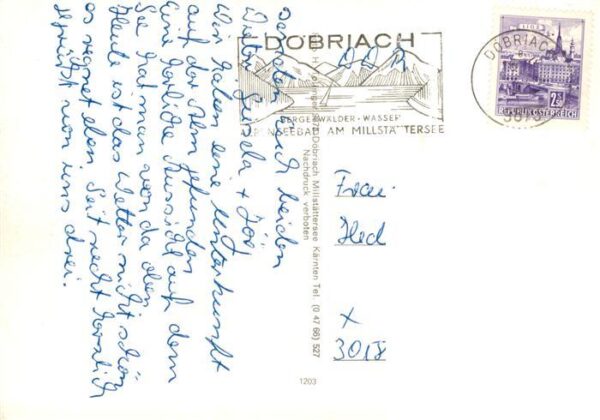 DÖBRIACH
BERGE · WÄLDER · WASSER
SEEBAD AM MILLSTÄTTERSEE
DÖBRIACH
REPUBLIK ÖSTERREICH
Döbriach Millstättersee Kärnten Tel. (0 47 66) 527
Nachdruck verboten
1203
beiden
Wir haben eine Unterkunft
auf der Alm gefunden.
Eine herrliche Aussicht auf dem
See hat man von da oben
Heute ist das Wetter nicht schön
es regnet eben. Seit recht herzlich
gegrüßt von uns drei.
Frau
X